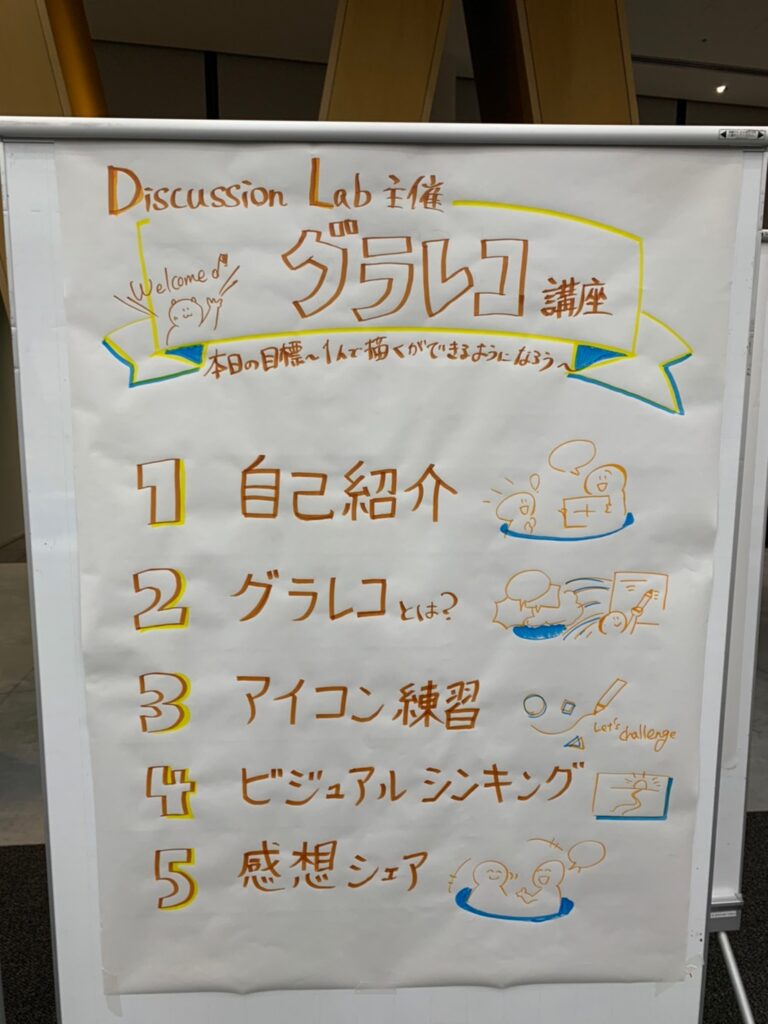 Discussion Lab 主催
Welcome♪
グラレコ講座
本日の目標～1人で描くができるようになろう～
1 自己紹介
2 グラレコとは?
3 アイコン練習
Let's challenge
4 ビジュアルシンキング
5 感想シェア